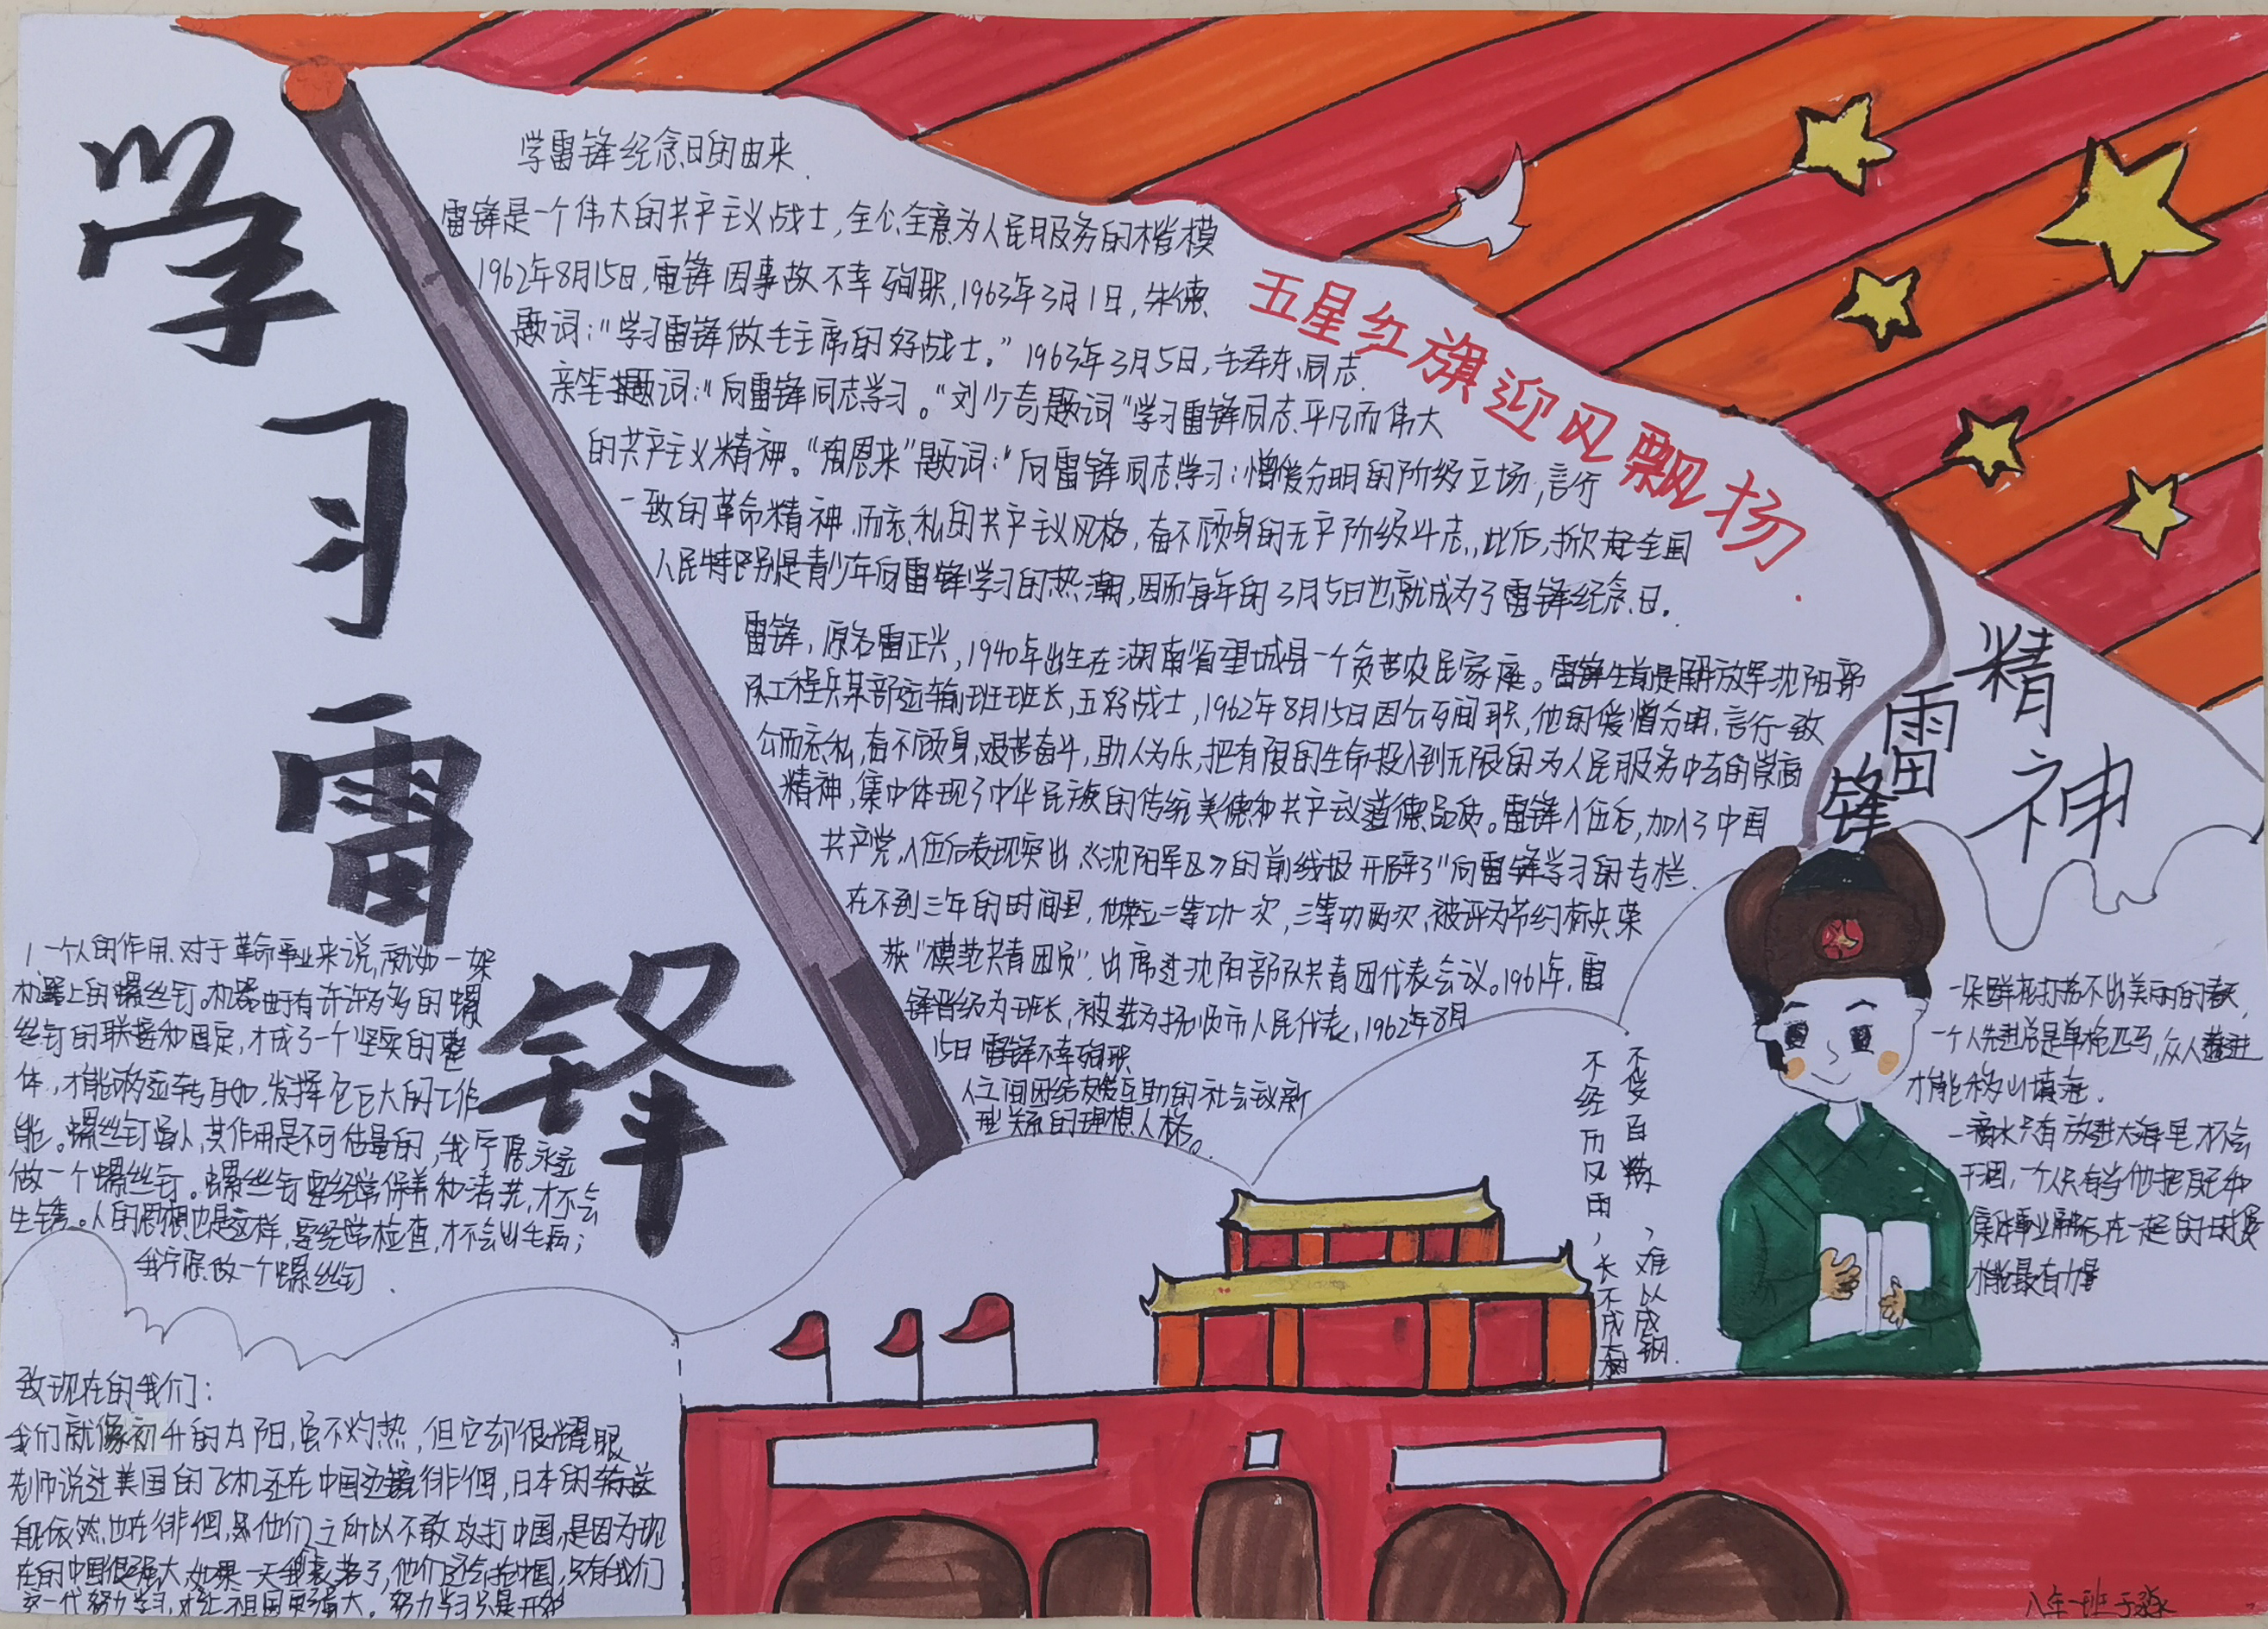 学习雷锋
学雷锋纪念日的由来
雷锋是一个伟大的共产主义战士,全心全意为人民服务的楷模
1962年8月15日,雷锋因事故不幸殉职,1963年3月1日,朱德
题词:"学习雷锋做毛主席的好战士。"1963年3月5日,毛泽东同志
亲笔题词:"向雷锋同志学习。"刘少奇题词"学习雷锋同志平凡而伟大
的共产主义精神。"周恩来"题词:"向雷锋同志学习:憎爱分明的阶级立场,言行
一致的革命精神,而忘私的共产主义风格,奋不顾身的无产阶级斗志,此后,掀起全国
人民特别是青少年向雷锋学习的热潮,因而每年的3月5日也就成为了雷锋纪念日。
雷锋,原名雷正兴,1940年出生在湖南省望城县一个贫苦农民家庭。雷锋生前是解放军沈阳部
队工程兵某部运输班班长,五好战士,1962年8月15日因公殉职,他的爱憎分明,言行一致
公而忘私,奋不顾身,艰苦奋斗,助人为乐,把有限的生命投入到无限的为人民服务中去的崇高
精神,集中体现了中华民族的传统美德和共产主义道德品质。雷锋入伍后,加入了中国
共产党,入伍后表现突出,《沈阳军区》的前线报开辟了"向雷锋学习的专栏
在不到三年的时间里,他荣立二等功一次,三等功两次,被评为节约标兵荣
获"模范共青团员",出席过沈阳部队共青团代表会议。1961年,雷
锋晋级为班长,被选为抚顺市人民代表,1962年8月
15日雷锋不幸殉职
人之间团结友爱互助的社会主义新
型关系的理想人格。
五星红旗迎风飘扬
雷锋
精神
1一个人的作用,对于革命事业来说,就如一架
机器上的螺丝钉。机器由于有许许多多的螺
丝钉的联接和固定,才成了一个坚实的整
体,才能够运转自如,发挥它巨大的工作
能。螺丝钉虽小,其作用是不可估量的,我宁愿永远
做一个螺丝钉。螺丝钉要经常保养和清洗,才不会
生锈。人的思想也是这样,要经常检查,才不会出毛病;
我宁愿做一个螺丝钉
致现在的我们:
我们就像初升的力阳,虽不灼热,但它却很耀眼
老师说过美国的飞机还在中国边境徘徊,日本的
舰依然也在徘徊,他们之所以不敢攻打中国,是因为现
在的中国很强大,如果一天我衰老了,他们还会抢中国,只有我们
这一代努力学习,才让祖国更强大。努力学习只是开始
不受百炼,难以成钢
不经历风雨,长不成树
一朵鲜花打扮不出美丽的春天,
一个人先进总是单枪匹马,众人进
才能移山填海。
一滴水只有放进大海里才不会
干涸,一个人只有当他把自己和
集体事业融合在一起的时候
才能最有力量
八年一班于淼